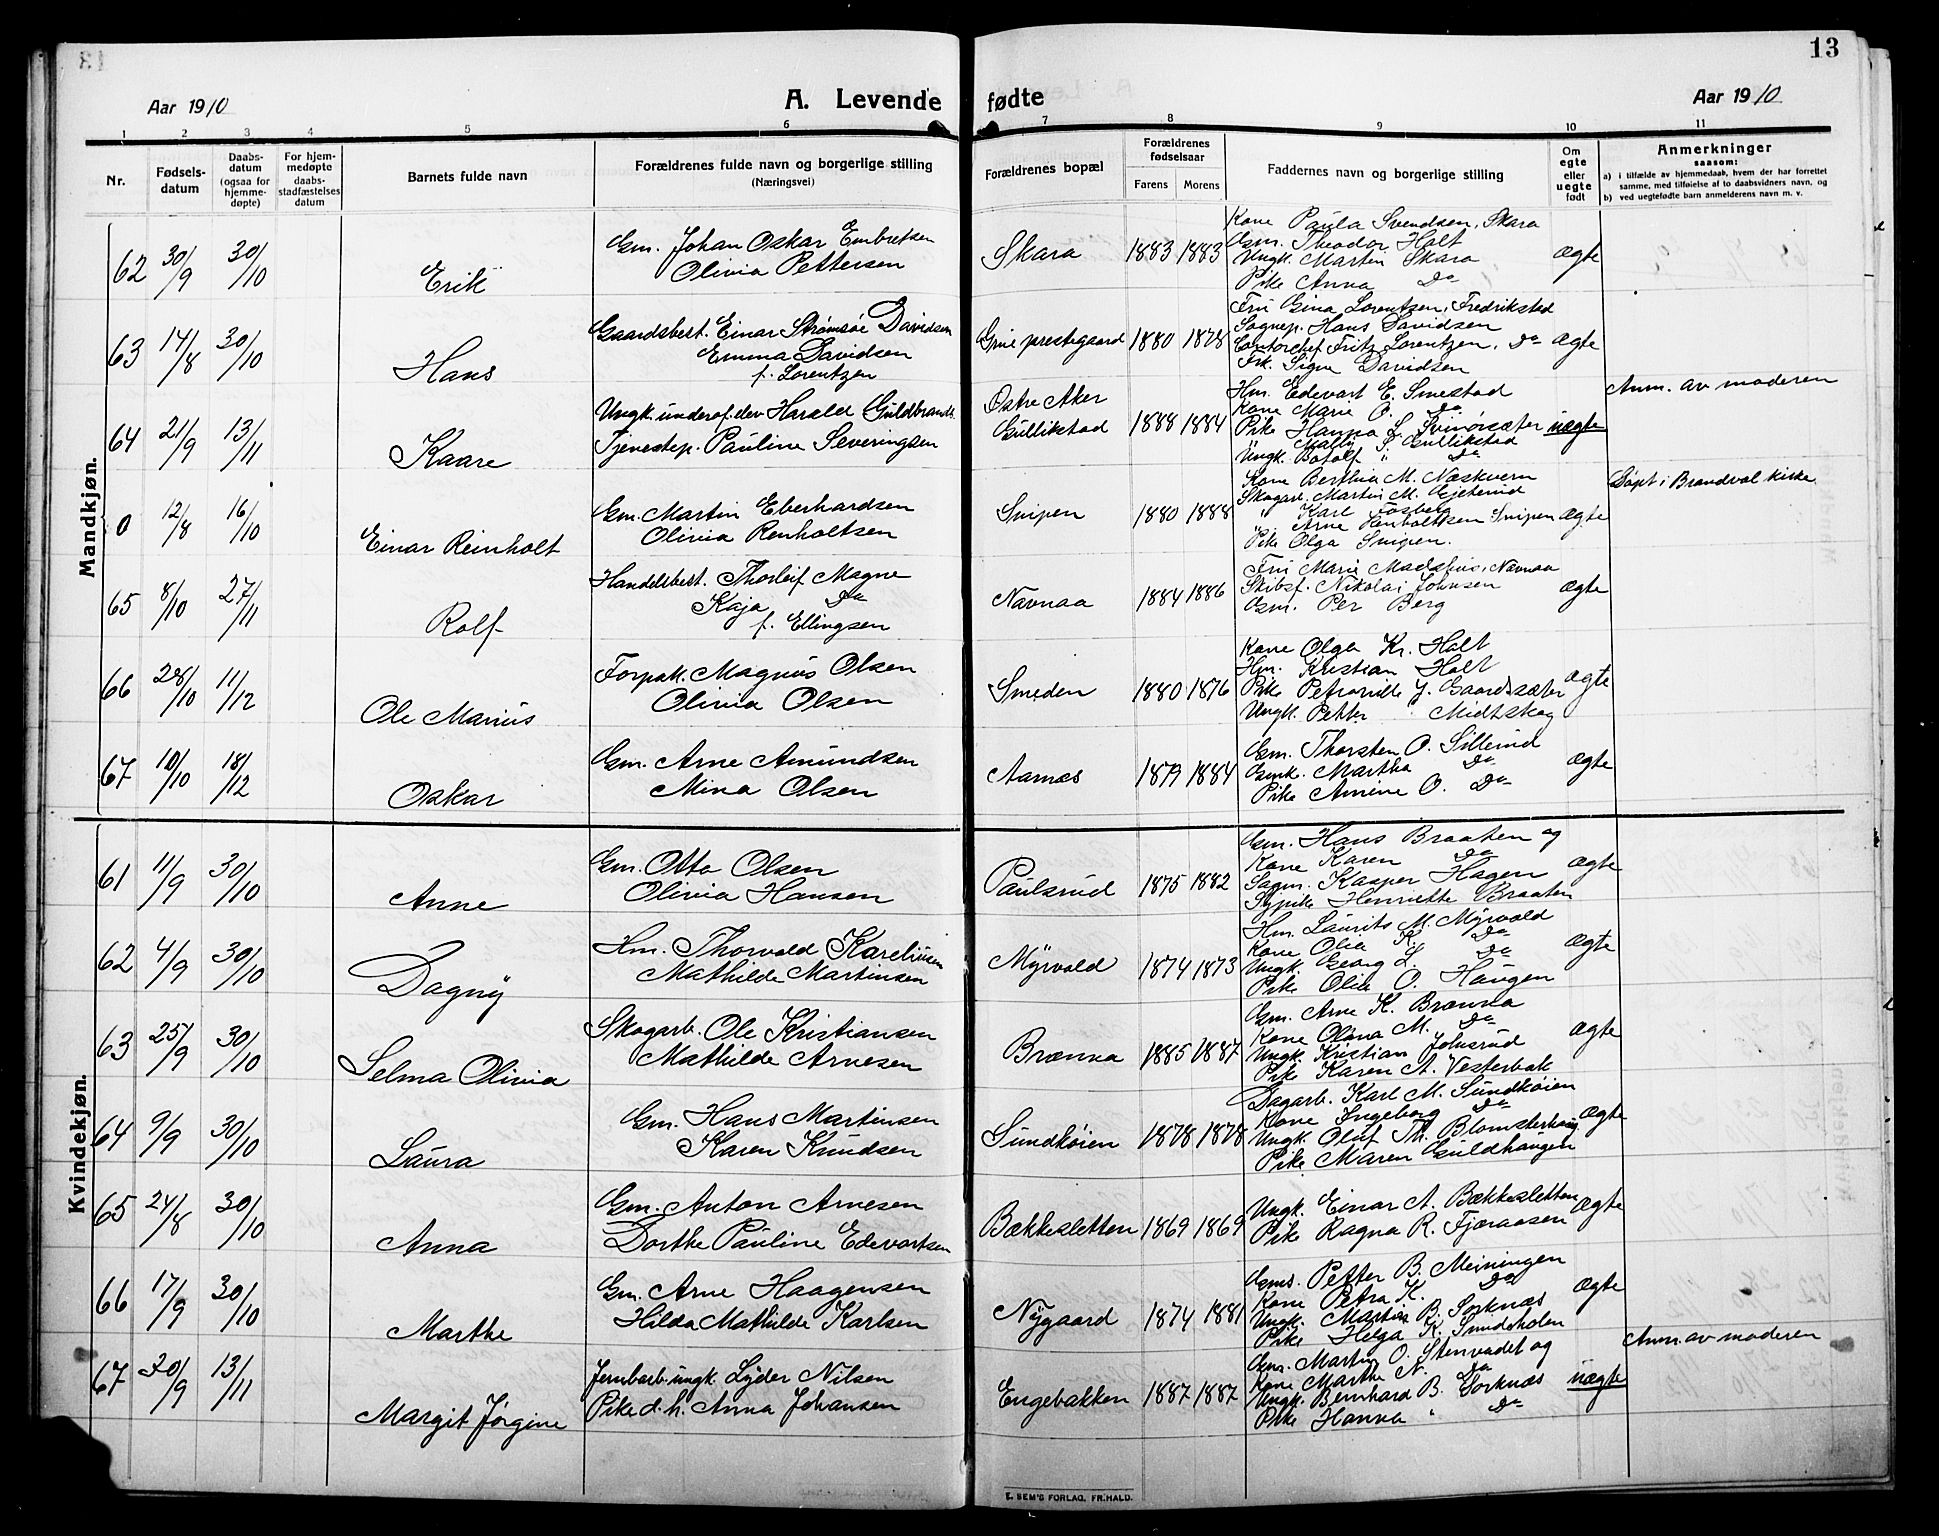 13
Aar 1910
A. Levende fødte
Aar 1910
1 2 3 4 5 6 7 8 9 10 11
Nr.
Fødsels-
datum
Daabs-
datum
(ogsaa for
hjemme-
døpte)
For hjem-
medøpte
daabs-
stadfæstelses
datum
Barnets fulde navn
Forældrenes fulde navn og borgerlige stilling
(Næringsvei)
Forældrenes bopæl
Forældrenes
fødselsaar
Farens Morens
Faddernes navn og borgerlige stilling
Om
egte
eller
uegte
født
Anmerkninger
saasom:
a) i tilfælde av hjemmedaab, hvem der har forrettet
samme, med tilføielse af to daabsvidners navn, og
b) ved uegtefødte barn anmelderens navn m. v.
Mandkjøn.
62 30/9 30/10 Erik
Gm. Johan Oskar Embretsen
Olivia Pettersen
Skara 1883 1883
Kone Paula Svendsen, Skara
Gm. Theodor Holt
Ungk. Martin Skara
Pike Anna Do
ægte
63 14/8 30/10 Hans
Gaardsbest. Einar Strømsøe Davidsen
Emma Davidsen
f. Lorentzen
Grue prestegaard 1880 1878
Fru Gina Lorentzen, Fredrikstad
Sognep. Hans Davidsen
Contorchef Fritz Lorentzen, Do
Frk. Signe Davidsen
ægte
64 21/9 13/11 Kaare
Ungk. underof. elev Harald Guldbrands.
Tjenestep. Pauline Severingsen
Østre Aker
Gullikstad 1888 1884
Hm. Edevart E. Smestad
Kone Marie O. Do
Pike Hanna L. Svinørsæter
Mally S. Gullikstad
Ungk. Botolf " Do
uægte
Anm. av moderen
0 12/8 16/10 Einar Reinholt
Gm. Martin Eberhardsen
Olivia Renholtsen
Snipen 1880 1888
Kone Berthia M. Næskvern
Skogarb. Martin M.
" Karl Fosberg
" Arne Renholtsen Snipen
Pike Olga Snipen.
ægte
Døpt i Brandval kirke
65 8/10 27/11 Rolf
Handelsbest. Thorleif Magne
Kaja Do
f. Ellingsen
Navnaa 1884 1886
Fru Marie Navnaa
Skibsf. Nikolai Johnsen
Gm. Per Berg
ægte
66 28/10 11/12 Ole Marius
Forpak. Magnus Olsen
Olivia Olsen
Smeden 1880 1876
Kone Olga Kr. Holt
Hm. Kristian Holt
Pike Petronille J. Gaardsæter
Ungk. Petter Midtskog
ægte
67 10/10 18/12 Oskar
Gm. Arne Amundsen
Mina Olsen
Aarnæs 1879 1884
Gm. Thorsten O. Sillerud
Gmk. Martha Do
Pike Amine O. Do
ægte
Kvindekjøn.
61 11/9 30/10 Anne
Gm. Otto Olsen
Olivia Hansen
Paulsrud 1875 1882
Gm. Hans Braaten og
Kone Karen Do
Sagm. Kasper Hagen
Sypike Henriette Braaten
ægte
62 4/9 30/10 Dagny
Hm. Thorvald Kareliusen
Mathilde Martinsen
Myrvold 1874 1873
Hm. Laurits M. Myrvold
Kone Olia K. Do
Ungk. Georg L. Do
Pike Olia O. Haugen
ægte
63 25/9 30/10 Selma Olivia
Skogarb. Ole Kristiansen
Mathilde Arnesen
Brænna 1885 1887
Gm. Arne K. Brænna
Kone Olava M. Do
Ungk. Kristian Johnsrud
Pike Karen A. Vesterbak
ægte
64 9/9 30/10 Laura
Gm. Hans Martinsen
Karen Knudsen
Sundkøien 1878 1878
Dagarb. Karl M. Sundkøien
Kone Ingeborg Do
Ungk. Oluf Th. Blomsterhaug
Pike Maren Guldhaugen
ægte
65 24/8 30/10 Anna
Gm. Anton Arnesen
Dorthe Pauline Edevartsen
Bækkesletten 1869 1869
Ungk. Einar A. Bækkesletten
Pike Ragna R. Fjæraasen
ægte
66 17/9 30/10 Marthe
Gm. Arne Haagensen
Hilda Mathilde Karlsen
Nygaard 1874 1881
Gms. Petter B. Meiningen
Kone Petra K. Do
Ungk. Martin B. Sorknæs
Pike Helga K. Smidsholen
ægte
67 20/9 13/11 Margit Jørgine
Jernbarb. ungk. Lyder Nilsen
Pike d. h. Anna Johansen
Engebakken 1887 1887
Gm. Martin O. Stenvadet og
Kone Marthe N. Do
Ungk. Bernhard B. Sorknæs
Pike Hanna " Do
uægte
Anm. av moderen
E. SEM'S FORLAG, FR.HALD.